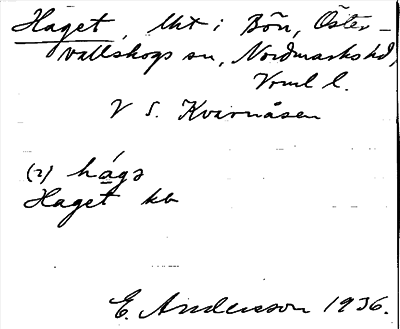 Haget, lht i Bön, Öster-
vallskogs sn, Nordmarks hd,
Vrml l.
V S. Kvarnåsen
(2) hágə
Haget kb
E. Andersson 1936.